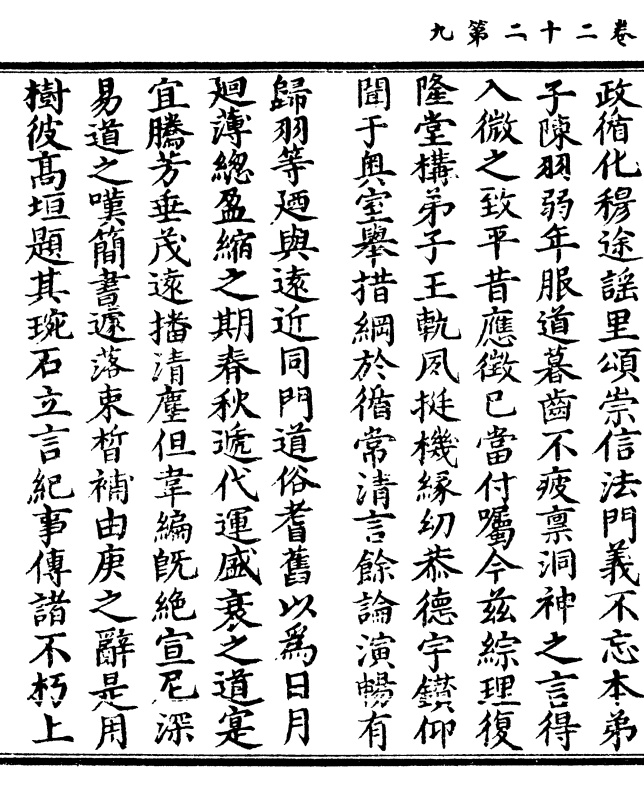 卷二十二第九
政循化穆途謡里頌崇信法門義不忘本弟
子陳羽弱年服道暮齒不疲禀洞神之言得
入微之致平昔應徵已當付囑今兹綜理復
隆堂構弟子王軌夙挺機緣幼恭德宇鑚仰
閨于奥室舉措綱於循常清言餘論演暢有
歸羽等廼與遠近同門道俗耆舊以爲日月
廻薄總盈縮之期春秋遞代運盛衰之道寔
宜騰芳垂茂遠播清塵但韋編旣絶宣尼深
易道之嘆簡書遂落束晳補由庚之辭是用
樹彼髙垣題其琬石立言紀事傳諸不朽上